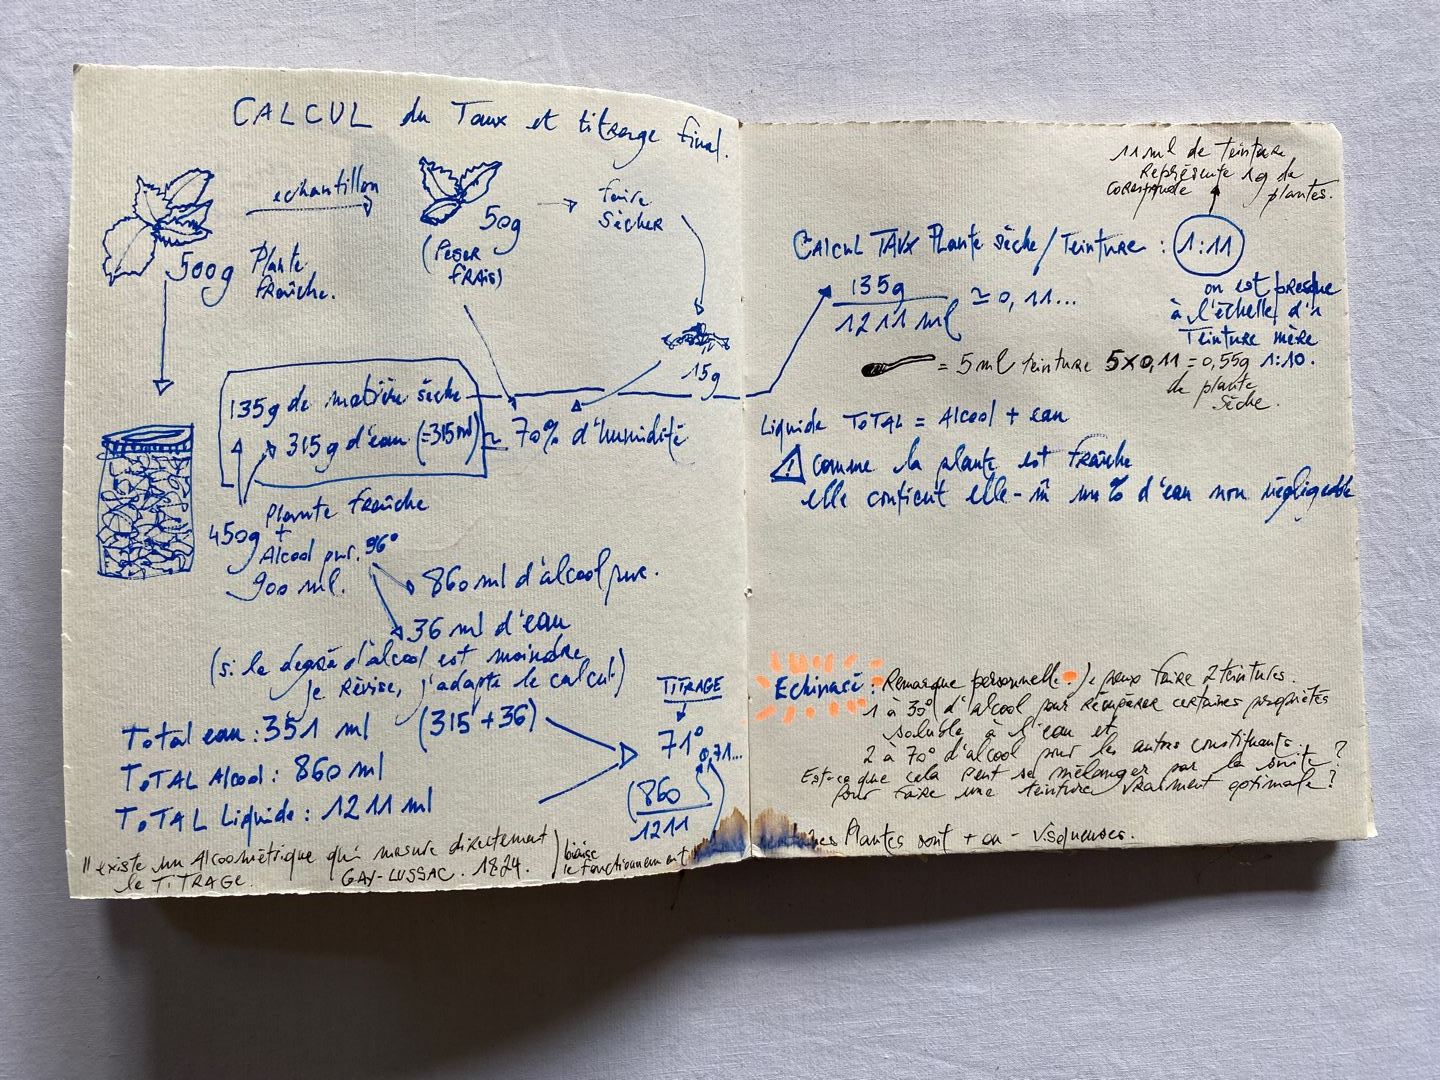 CALCUL du Taux et titrage final.
500g Plante fraîche.
echantillon
50g
(Peser frais)
faire sècher
15g
135g de matière sèche
315g d'eau (=315 ml) ≃ 70% d'humidité
450g Plante fraîche
+
Alcool pur. 96°
900 ml.
860 ml d'alcool pur.
36 ml d'eau
(si le degré d'alcool est moindre
je révise, j'adapte le calcul)
Total eau : 351 ml (315 + 36)
ToTAL Alcool : 860 ml
ToTAL Liquide : 1211 ml
TITRAGE
71°
0,71...
(860
1211
Il existe un Alcoomètrique qui mesure directement
le TITRAGE. GAY-LUSSAC. 1824.
) biaise
le fonctionnement
certaines Plantes sont + ou - visqueuses.
11 ml de teinture
Représente 1g de
correspnde plantes.
CAlcul TAUX Plante sèche/Teinture : 1:11
135g
1211 ml
≃ 0,11...
on est presque
à l'échelle d'1
Teinture mère
1:10.
= 5 ml teinture 5x0,11 = 0,55g
de plante
sèche.
Liquide ToTAL = Alcool + eau
! comme la plante est fraîche
elle contient elle-m̂ un % d'eau non négligeable
Echinacé : Remarque personnelle. Je peux faire 2 teintures.
1 à 30° d'alcool pour récupérer certaines propriétés
soluble à l'eau et
2 à 70° d'alcool pour les autres constituants.
Est-ce que cela peut se mélanger par la suite ?
pour faire une teinture vraiment optimale ?